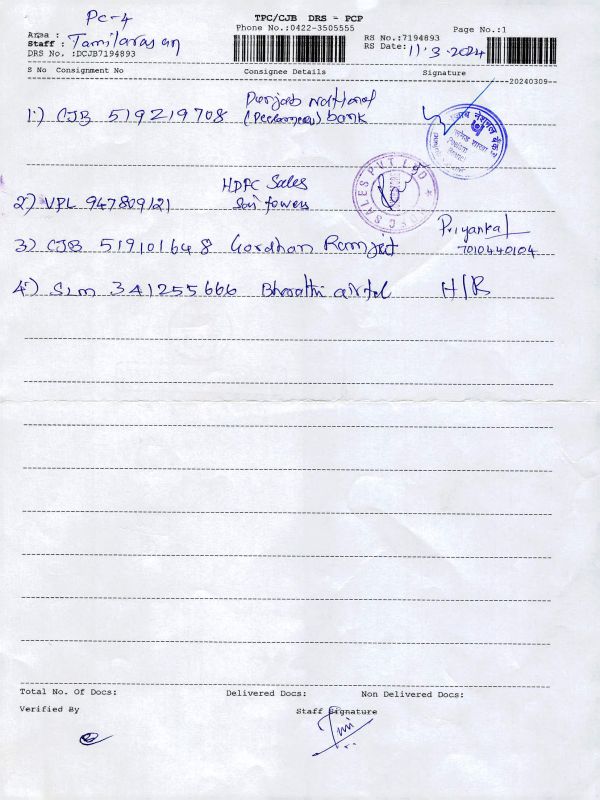 PC-4
TPC/CJB DRS - PCP
Phone No.:0422-3505555
Page No.:1
Area :
Staff : Tamilarasan
DRS No. :DCJB7194893
RS No.:7194893
RS Date: 11.3.2024
S No Consignment No Consignee Details Signature
20240309
1) CJB 519219708 Punjab National
bank
पंजाब नेशनल बैंक
2) VPL 947809121 HDFC Sales
Sai towers
SALES PVT LTD
3) CJB 519101648 Gordhan Ramjit Priyanka
7010440104
4) SLM 341255666 Bharathi airtel H/R
Total No. Of Docs: Delivered Docs: Non Delivered Docs:
Verified By Staff Signature